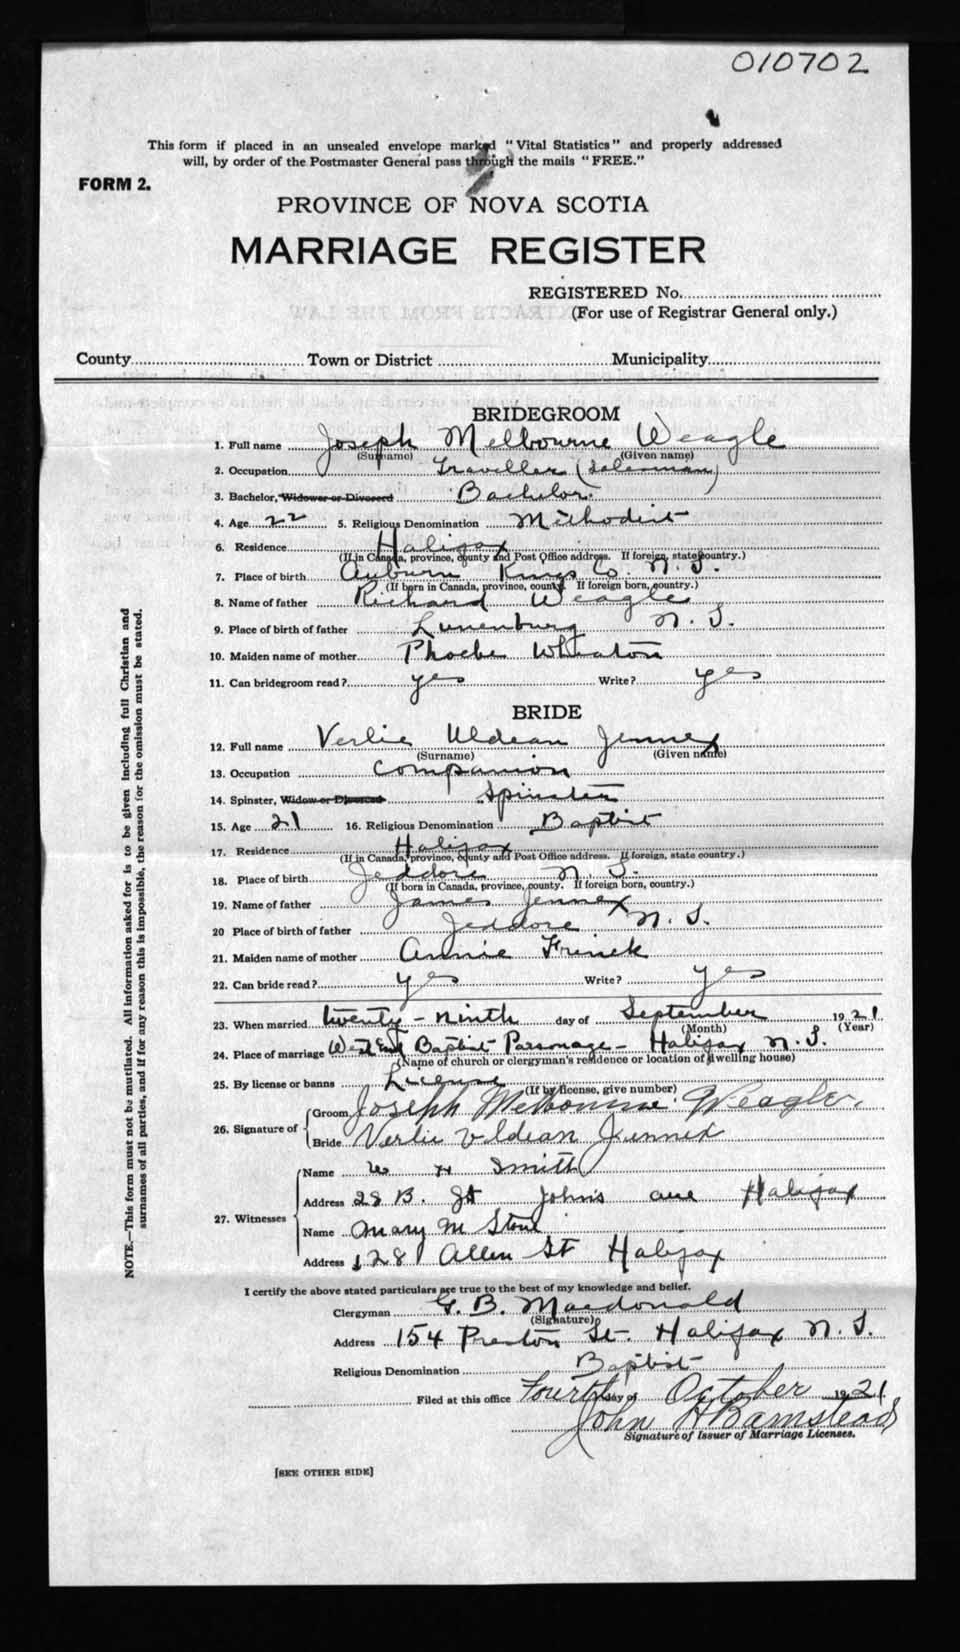 010702
This form if placed in an unsealed envelope marked "Vital Statistics" and properly addressed
will, by order of the Postmaster General pass through the mails "FREE."
FORM 2.
PROVINCE OF NOVA SCOTIA
MARRIAGE REGISTER
REGISTERED No.
(For use of Registrar General only.)
County Town or District Municipality
BRIDEGROOM
1. Full name Joseph Melbourne Weagle
(Surname) (Given name)
2. Occupation Traveller (Salesman)
3. Bachelor, Widower or Divorced Bachelor.
4. Age 22 5. Religious Denomination Methodist
6. Residence Halifax
(If in Canada, province, county and Post Office address. If foreign, state country.)
7. Place of birth Auburn Kings Co. N. S.
(If born in Canada, province, county. If foreign born, country.)
8. Name of father Richard Weagle
9. Place of birth of father Lunenburg N. S.
10. Maiden name of mother Phoebe Wheaton
11. Can bridegroom read? yes Write? yes
BRIDE
12. Full name Verlie Uldean Jennex
(Surname) (Given name)
13. Occupation Companion
14. Spinster, Widow or Divorced Spinster
15. Age 21 16. Religious Denomination Baptist
17. Residence Halifax
(If in Canada, province, county and Post Office address. If foreign, state country.)
18. Place of birth Jeddore N. S.
(If born in Canada, province, county. If foreign born, country.)
19. Name of father James Jennex
20 Place of birth of father Jeddore N. S.
21. Maiden name of mother Annie
22. Can bride read? yes Write? yes
23. When married twenty-ninth day of September 1921
(Month) (Year)
24. Place of marriage West End Baptist Parsonage - Halifax N. S.
(Name of church or clergyman's residence or location of dwelling house)
25. By license or banns License
(If by license, give number)
26. Signature of Groom Joseph Melbourne Weagle.
Bride Verlie Uldean Jennex
27. Witnesses Name W H Smith
Address 28 B. St John's ave Halifax
Name Mary M Stone
Address 128 Allen St Halifax
I certify the above stated particulars are true to the best of my knowledge and belief.
Clergyman G. B. Macdonald
(Signature)
Address 154 Preston St. Halifax N. S.
Religious Denomination Baptist
Filed at this office Fourth day of October 1921
John H Barnstead
Signature of Issuer of Marriage Licenses.
[SEE OTHER SIDE]
NOTE.—This form must not be mutilated. All information asked for is to be given including full Christian and
surnames of all parties, and if for any reason this is impossible, the reason for the omission must be stated.